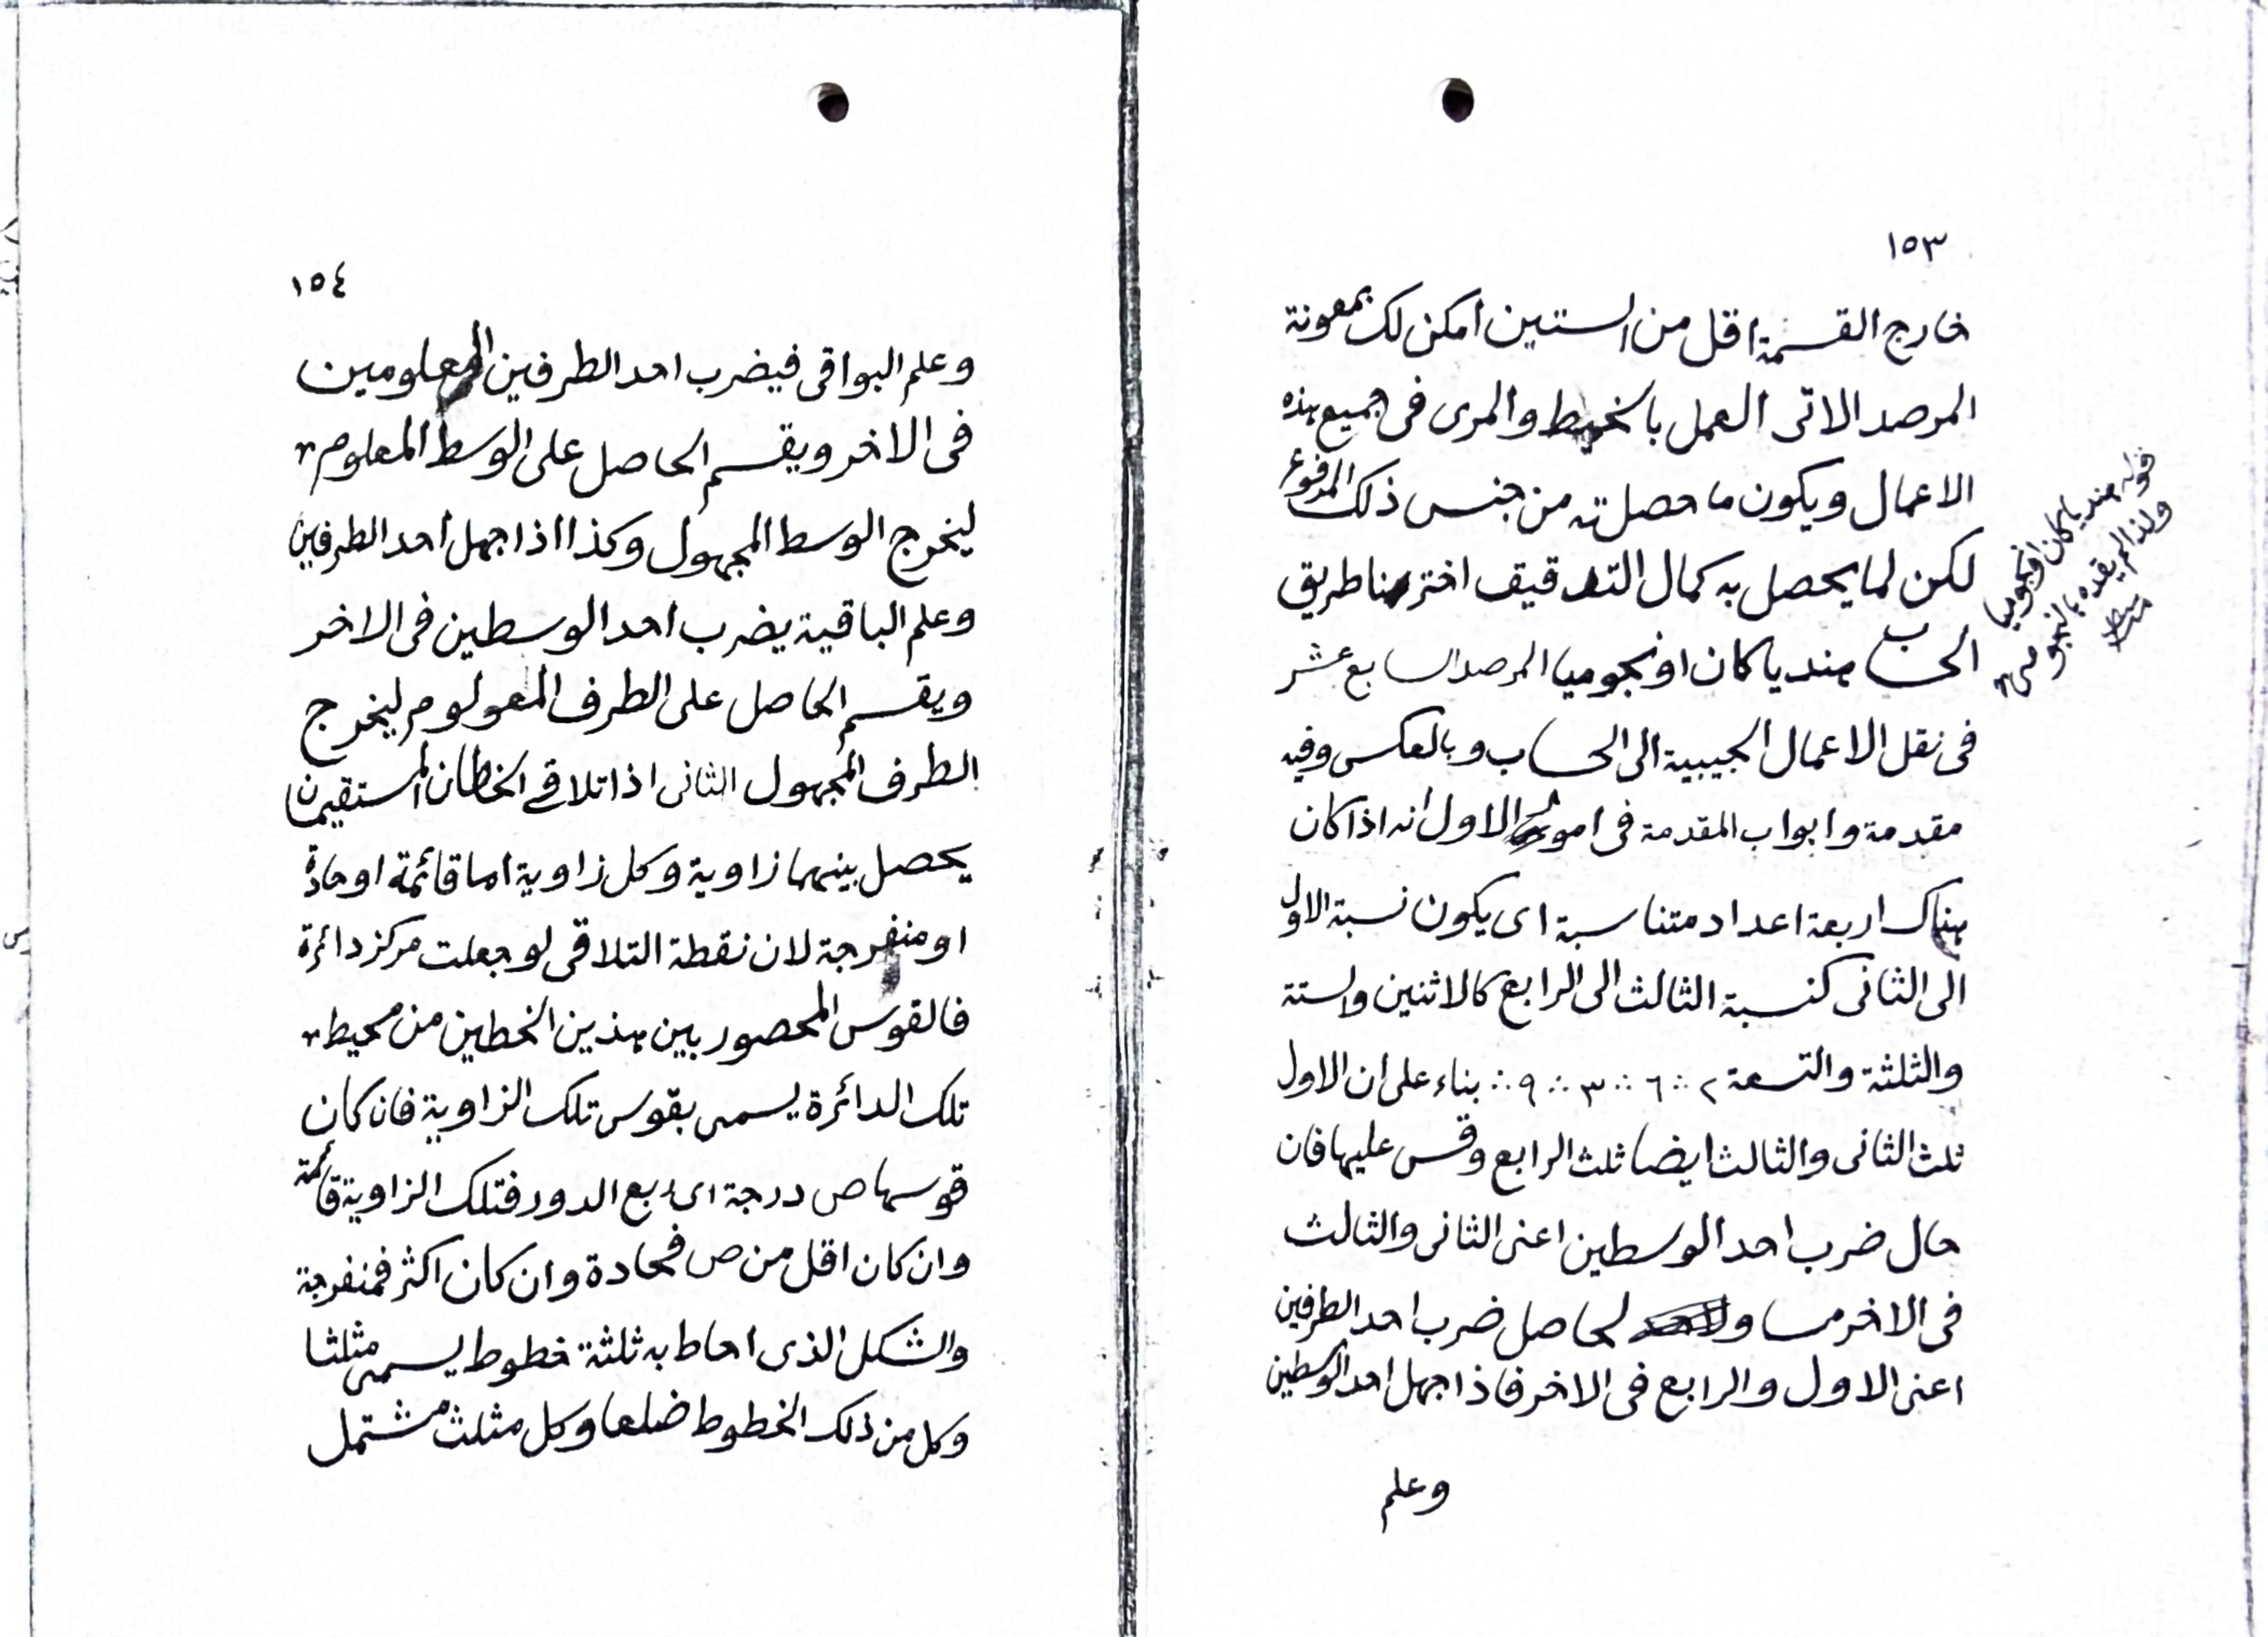 ١٥٣
خارج القسمة اقل من الستين امكن لك بمعونة
المرصد الاتى العمل بالخيط والمرى فى جميع هذه
الاعمال ويكون ما حصلته من جنس ذلك المرفوع
لكن لما يحصل به كمال التدقيق اخترنا طريق
الحساب هنديا كان او نجوميا المرصد السابع عشر
فى نقل الاعمال الجيبية الى الحساب وبالعكس وفيه
مقدمة وابواب المقدمة فى امور الاول انه اذا كان
هناك اربعة اعداد متناسبة اى يكون نسبة الاول
الى الثانى كنسبة الثالث الى الرابع كالاثنين والستة
والثلثة والتسعة ٢ ∴ ٦ ∴ ٣ ∴ ٩ ∴ بناء على ان الاول
ثلث الثانى والثالث ايضا ثلث الرابع وقس عليها فان
حال ضرب احد الوسطين اعنى الثانى والثالث
فى الاخر مساو لحاصل ضرب احد الطرفين
اعنى الاول والرابع فى الاخر فاذا جهل احد الوسطين
وعلم
قوله هنديا كان او نجوميا
ولذا لم يقيده بالنجومى
١٥٤
وعلم البواقى فيضرب احد الطرفين المعلومين
فى الاخر ويقسم الحاصل على الوسط المعلوم
ليخرج الوسط المجهول وكذا اذا جهل احد الطرفين
وعلم الباقية يضرب احد الوسطين فى الاخر
ويقسم الحاصل على الطرف المعولوم ليخرج
الطرف المجهول الثانى اذا تلاقى الخطان المستقيمان
يحصل بينهما زاوية وكل زاوية اما قائمة او حادة
او منفرجة لان نقطة التلاقى لو جعلت مركز دائرة
فالقوس المحصور بين هذين الخطين من محيط
تلك الدائرة يسمى بقوس تلك الزاوية فان كان
قوسها ص درجة اى ربع الدور فتلك الزاوية قائمة
وان كان اقل من ص فحادة وان كان اكثر فمنفرجة
والشكل الذى احاط به ثلثة خطوط يسمى مثلثا
وكل من ذلك الخطوط ضلعا وكل مثلث مشتمل